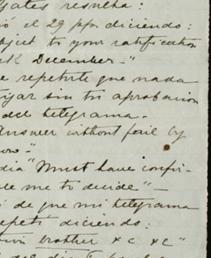 resulta:
el 29 ppo. diciendo:
bject to your ratification
December."
e repetirte que nada
sin tu aprobacion
del telegrama.
Answer without fail by
"Must have confir-
me to decide" —
de que mi telegrama
repeti diciendo:
brother &c &c"